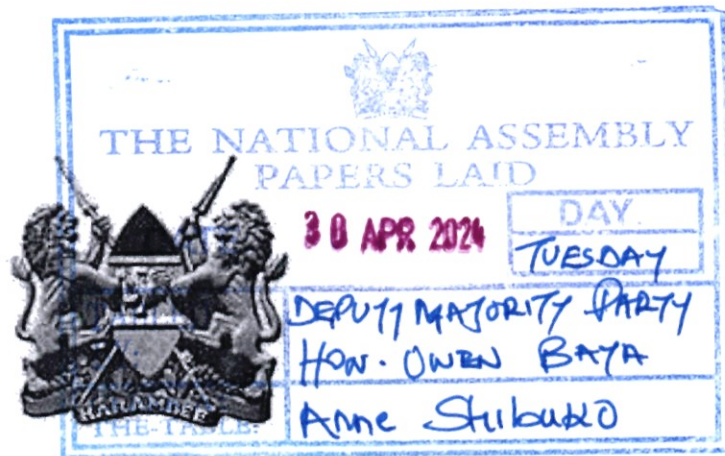 THE NATIONAL ASSEMBLY
PAPERS LAID
30 APR 2024
DAY
TUESDAY
DEPUTY MAJORITY PARTY
HON. OWEN BAYA
HARAMBEE
THE-TABLE:
Anne Shibuko